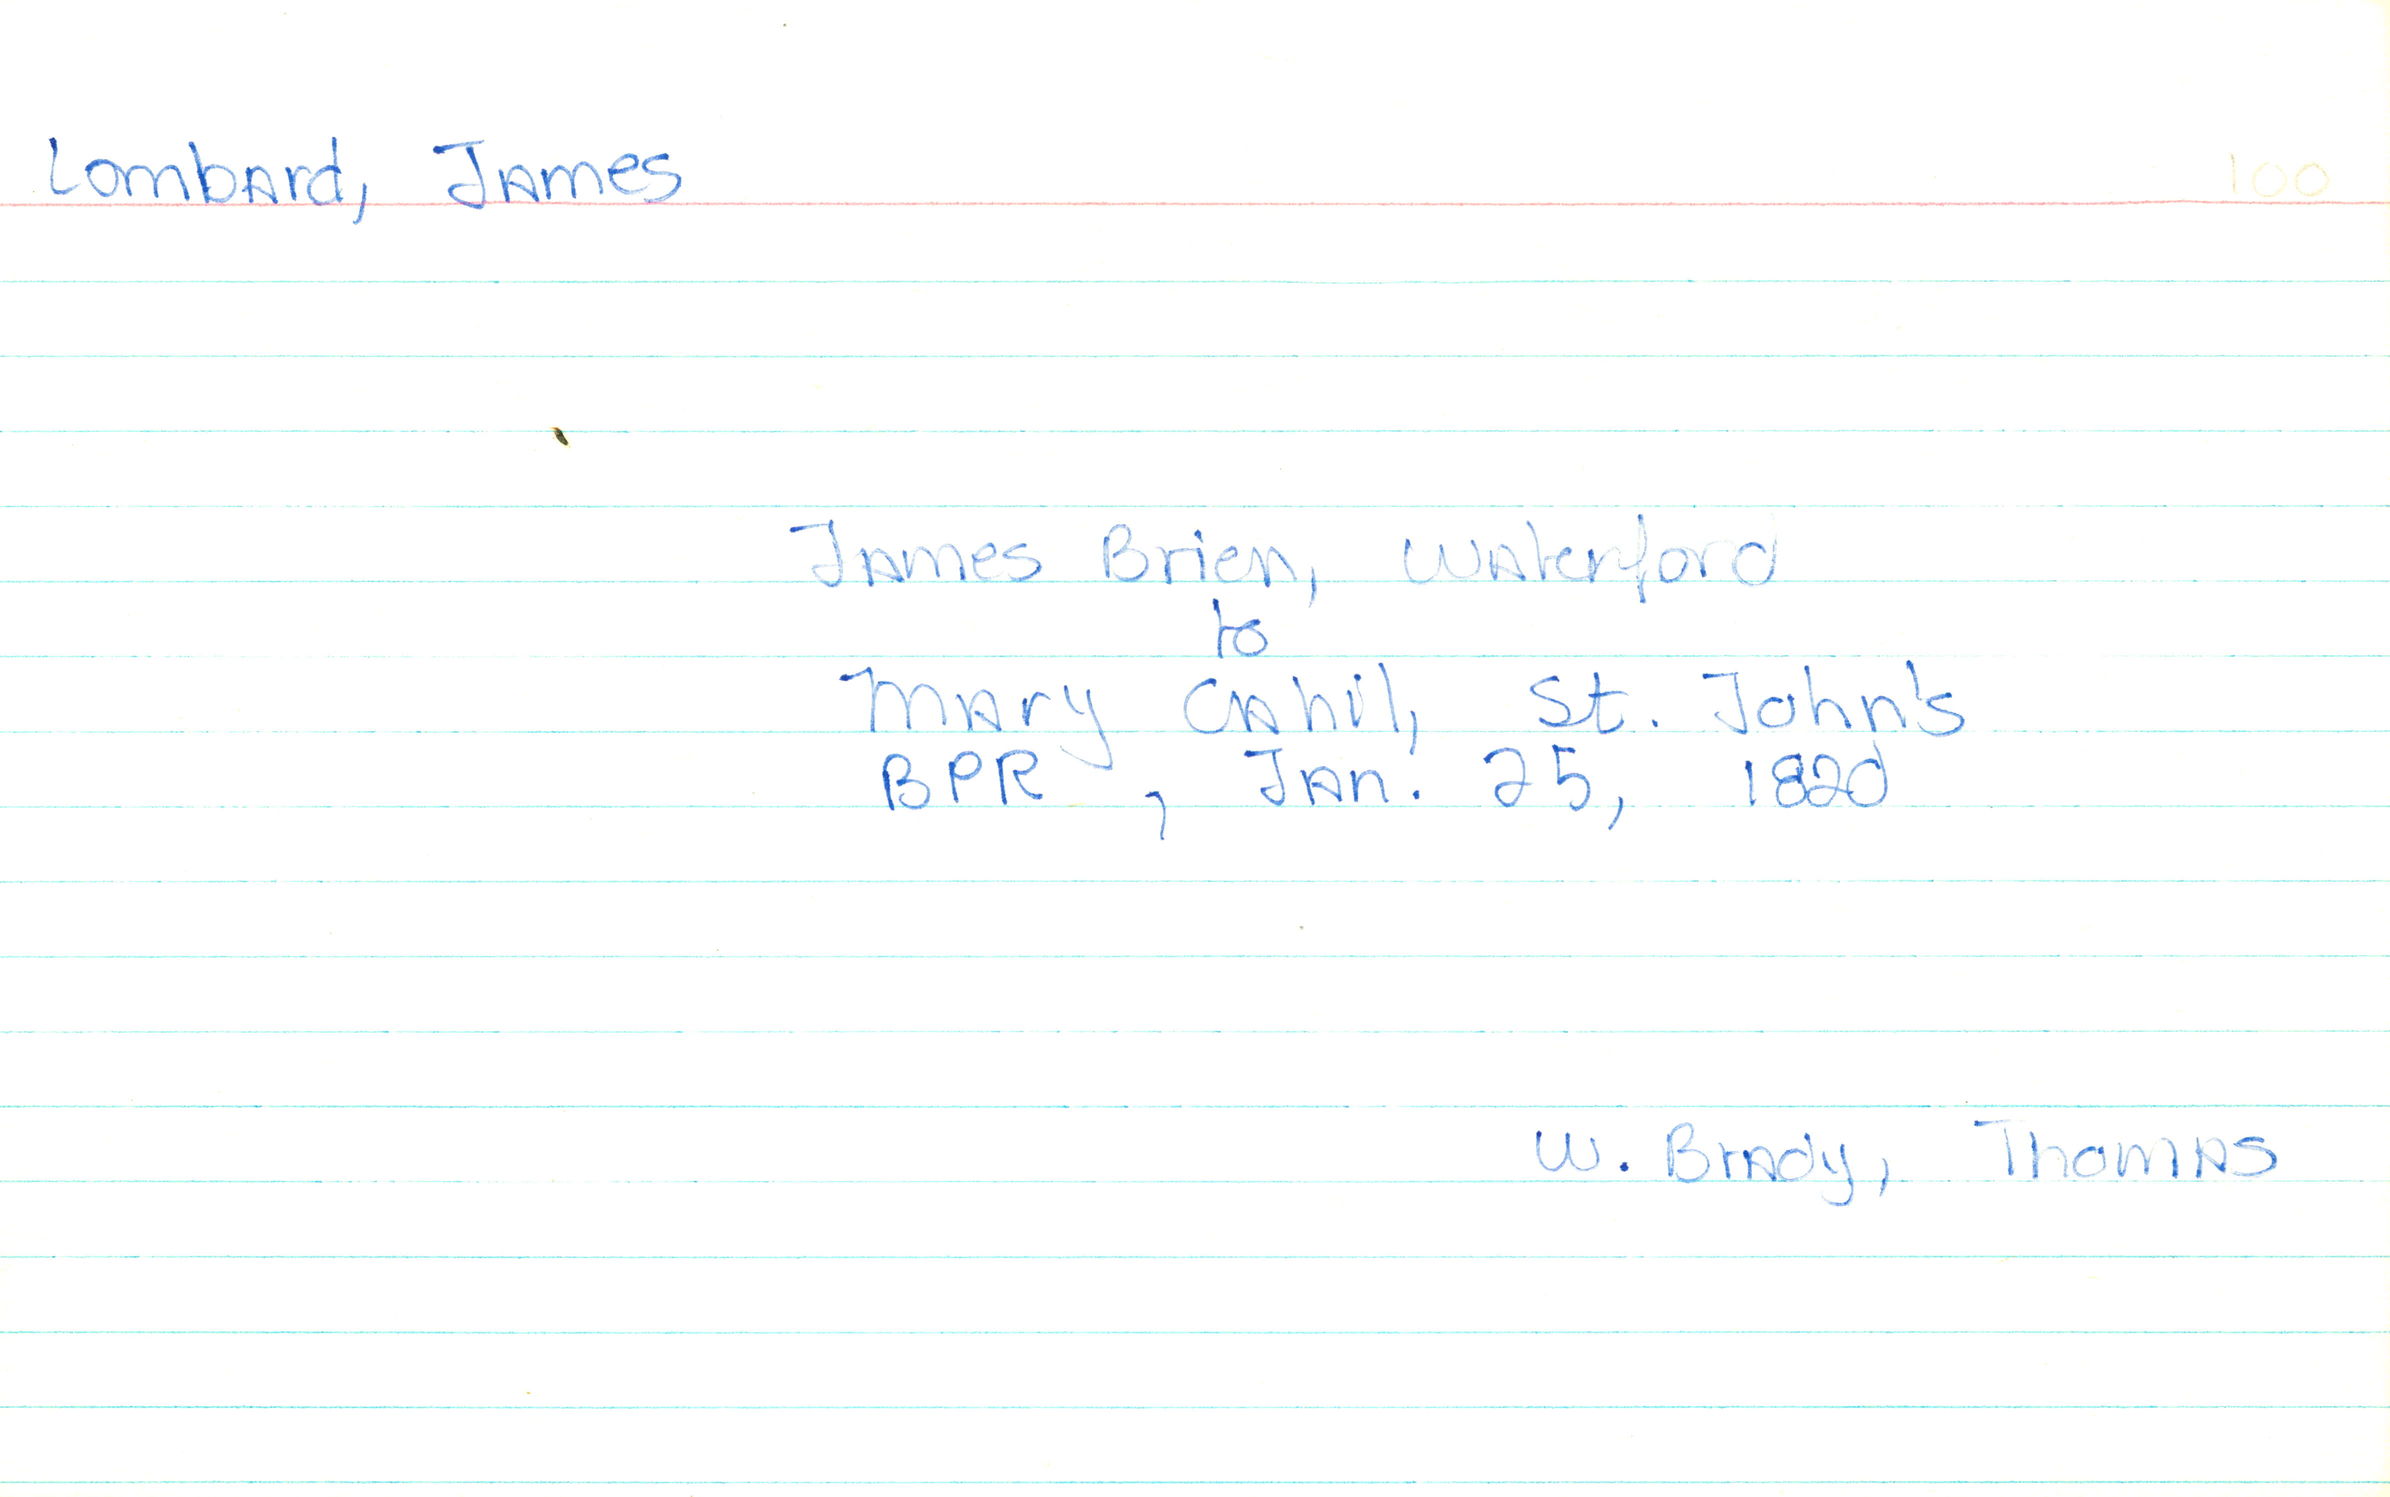 Lombard, James 100
James Brien, Waterford
to
Mary Cahil, St. John's
BPR , Jan. 25, 1820
W. Brady, Thomas